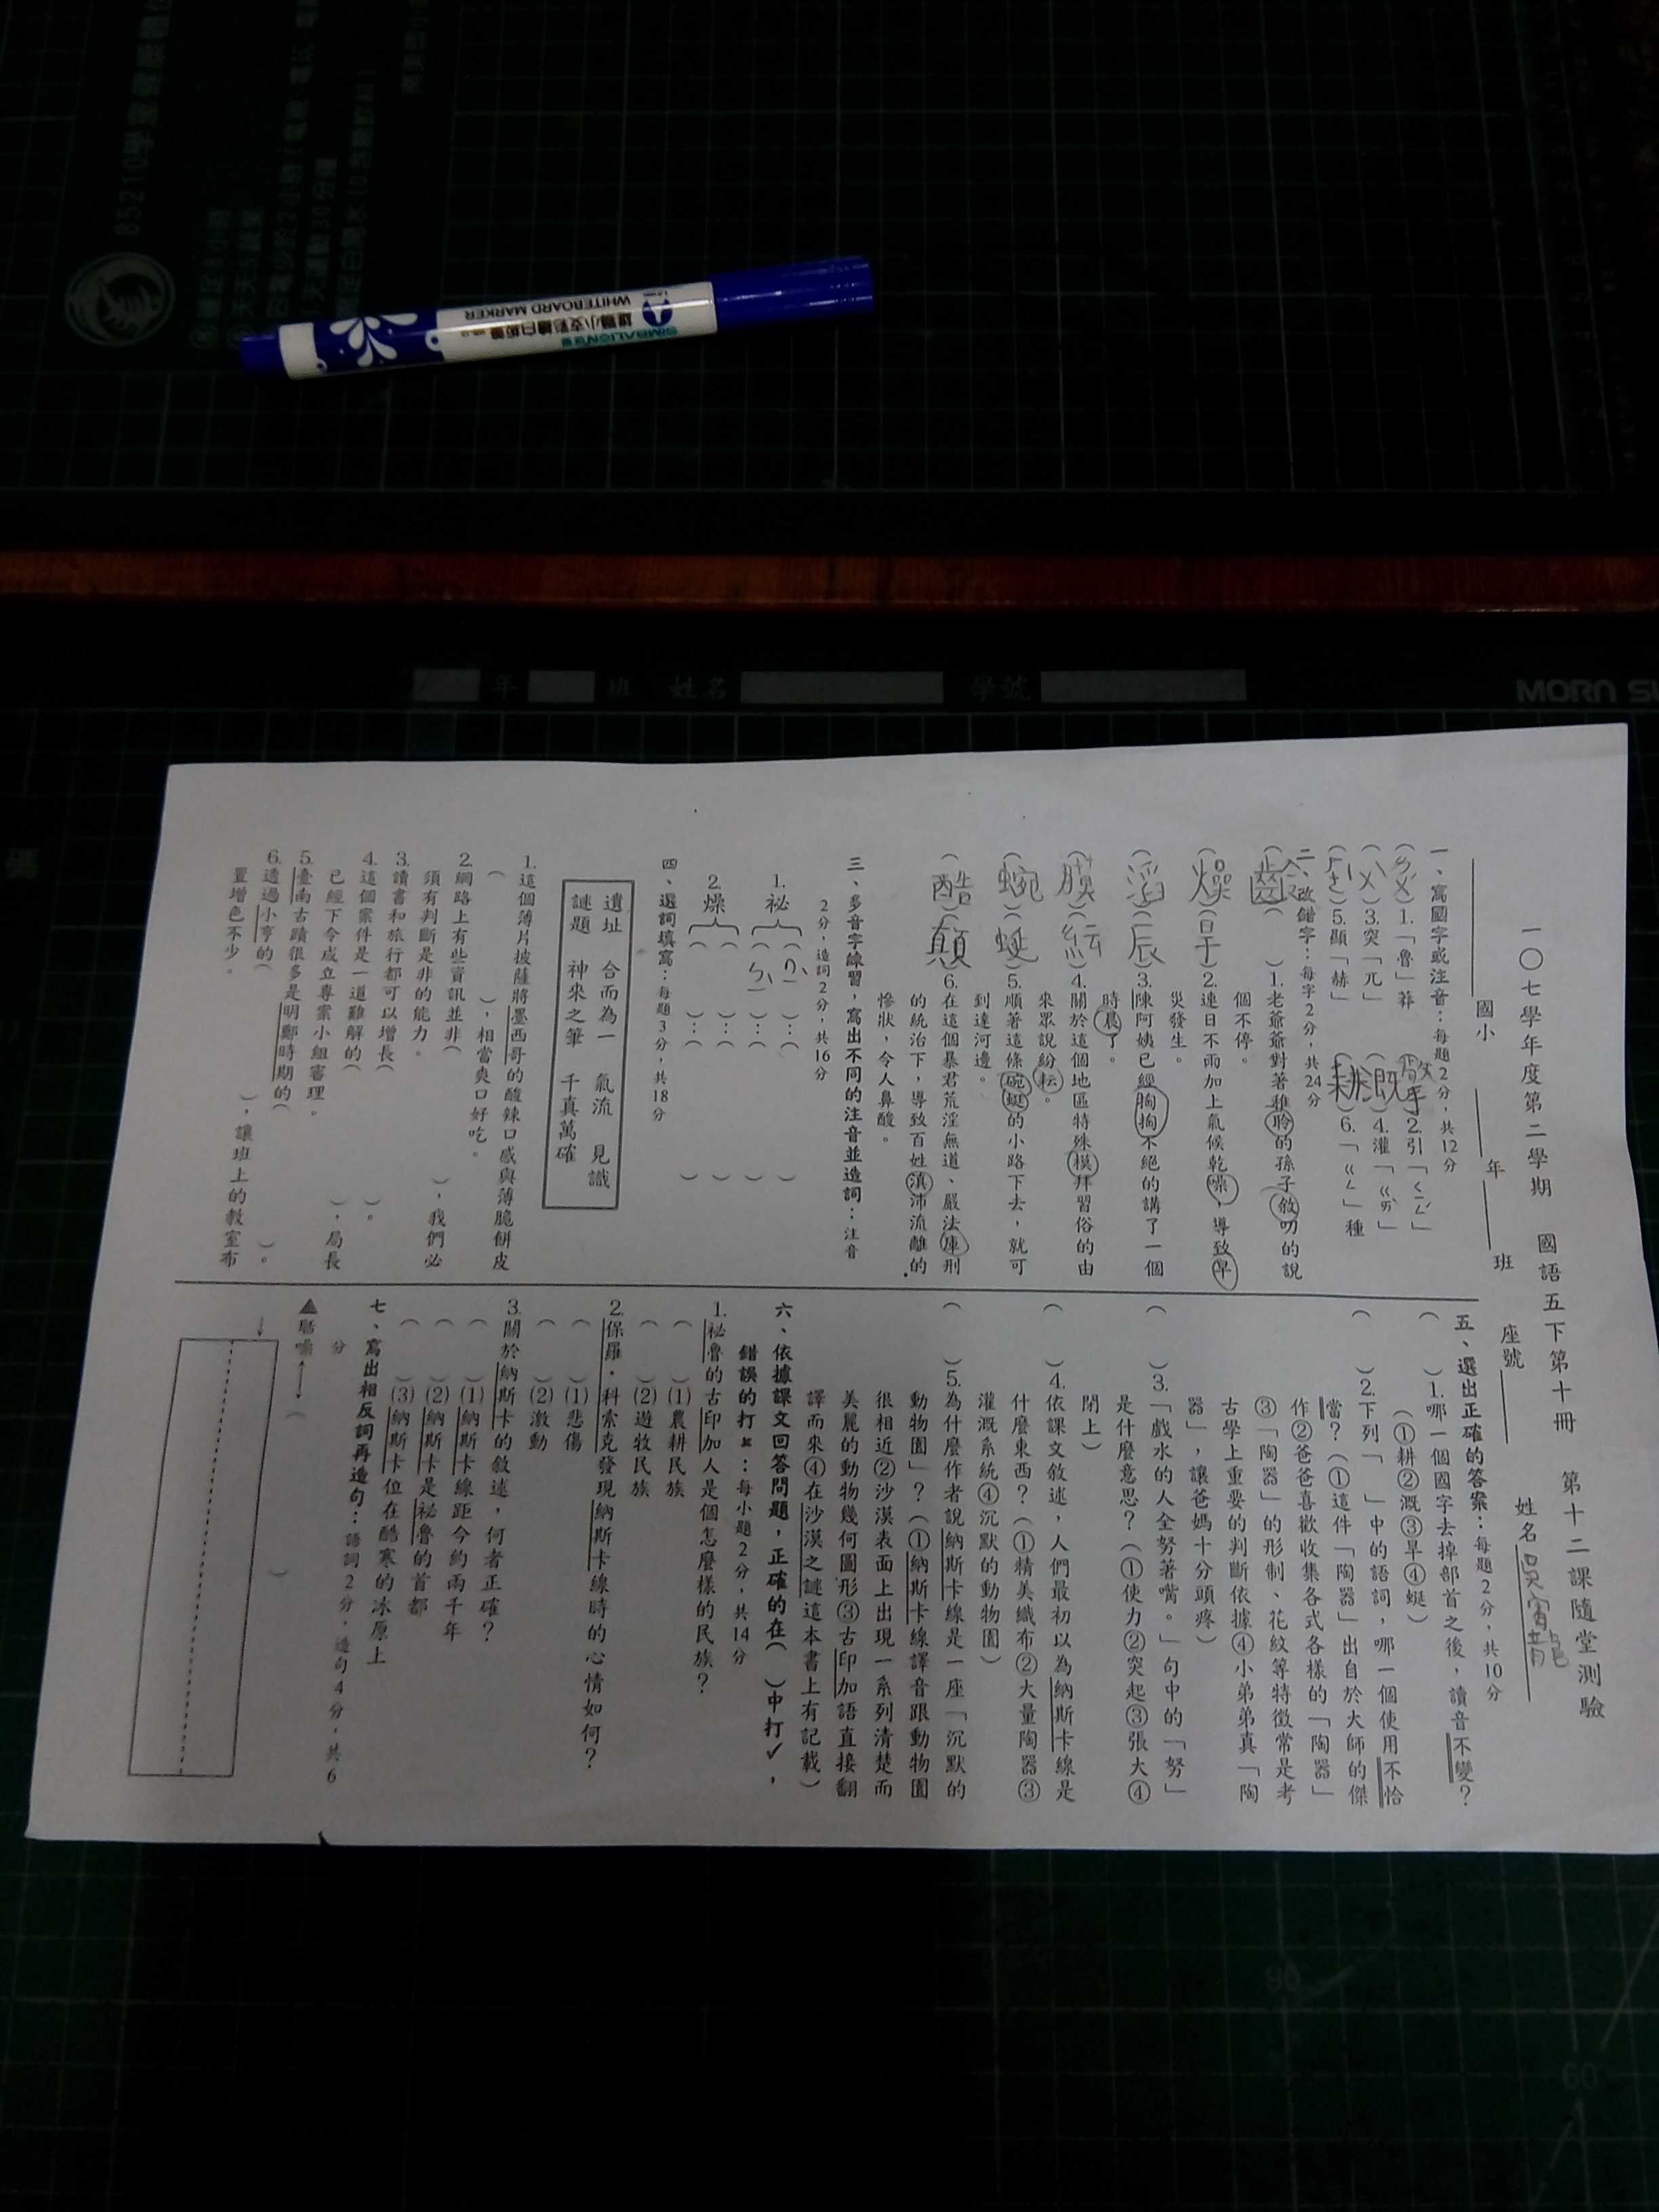 一〇七學年度第二學期　國語五下第十冊　第十二課隨堂測驗
國小　年　班　座號　姓名
一、寫國字或注音：每題2分，共12分
1.「魯」莽
2.引「ㄑㄧㄥˊ」
3.突「兀」
4.灌「ㄍㄞˋ」
5.顯「赫」
6.「ㄍㄥ」種
二、改錯字：每字2分，共24分
(齡)( )1.老爺爺對著稚聆的孫子敘叨的說
個不停。
(燥)(旱)2.連日不雨加上氣候乾噪，導致早
災發生。
(滔)(辰)3.陳阿姨已經掏掏不絕的講了一個
時晨了。
(膜)(紜)4.關於這個地區特殊模拜習俗的由
來眾說紛耘。
(蜿)(蜒)5.順著這條碗蜓的小路下去，就可
到達河邊。
(酷)(顛)6.在這個暴君荒淫無道、嚴法庫刑
的統治下，導致百姓滇沛流離的
慘狀，令人鼻酸。
三、多音字練習，寫出不同的注音並造詞：注音
2分，造詞2分，共16分
1.祕
2.燥
四、選詞填寫：每題3分，共18分
遺址　合而為一　氣流　見識
謎題　神來之筆　千真萬確
1.這個薄片披薩將墨西哥的酸辣口感與薄脆餅皮
( )，相當爽口好吃。
2.網路上有些資訊並非( )，我們必
須有判斷是非的能力。
3.讀書和旅行都可以增長( )。
4.這個案件是一道難解的( )，局長
已經下令成立專案小組審理。
5.臺南古蹟很多是明鄭時期的( )。
6.透過小亨的( )，讓班上的教室布
置增色不少。
五、選出正確的答案：每題2分，共10分
( )1.哪一個國字去掉部首之後，讀音不變？
(①耕②溉③旱④蜓)
( )2.下列「　」中的語詞，哪一個使用不恰
當？(①這件「陶器」出自於大師的傑
作②爸爸喜歡收集各式各樣的「陶器」
③「陶器」的形制、花紋等特徵常是考
古學上重要的判斷依據④小弟弟真「陶
器」，讓爸媽十分頭疼)
( )3.「戲水的人全努著嘴。」句中的「努」
是什麼意思？(①使力②突起③張大④
閉上)
( )4.依課文敘述，人們最初以為納斯卡線是
什麼東西？(①精美織布②大量陶器③
灌溉系統④沉默的動物園)
( )5.為什麼作者說納斯卡線是一座「沉默的
動物園」？(①納斯卡線譯音跟動物園
很相近②沙漠表面上出現一系列清楚而
美麗的動物幾何圖形③古印加語直接翻
譯而來④在沙漠之謎這本書上有記載)
六、依據課文回答問題，正確的在( )中打✓，
錯誤的打✕：每小題2分，共14分
1.祕魯的古印加人是個怎麼樣的民族？
( )(1)農耕民族
( )(2)遊牧民族
2.保羅．科索克發現納斯卡線時的心情如何？
( )(1)悲傷
( )(2)激動
3.關於納斯卡的敘述，何者正確？
( )(1)納斯卡線距今約兩千年
( )(2)納斯卡是祕魯的首都
( )(3)納斯卡位在酷寒的冰原上
七、寫出相反詞再造句：語詞2分，造句4分，共6
分
▲聒噪←→( )
→
年　班　姓名　學號
SIMBALION雄獅
雄獅小支彩繪白板筆
WHITEBOARD MARKER
85210